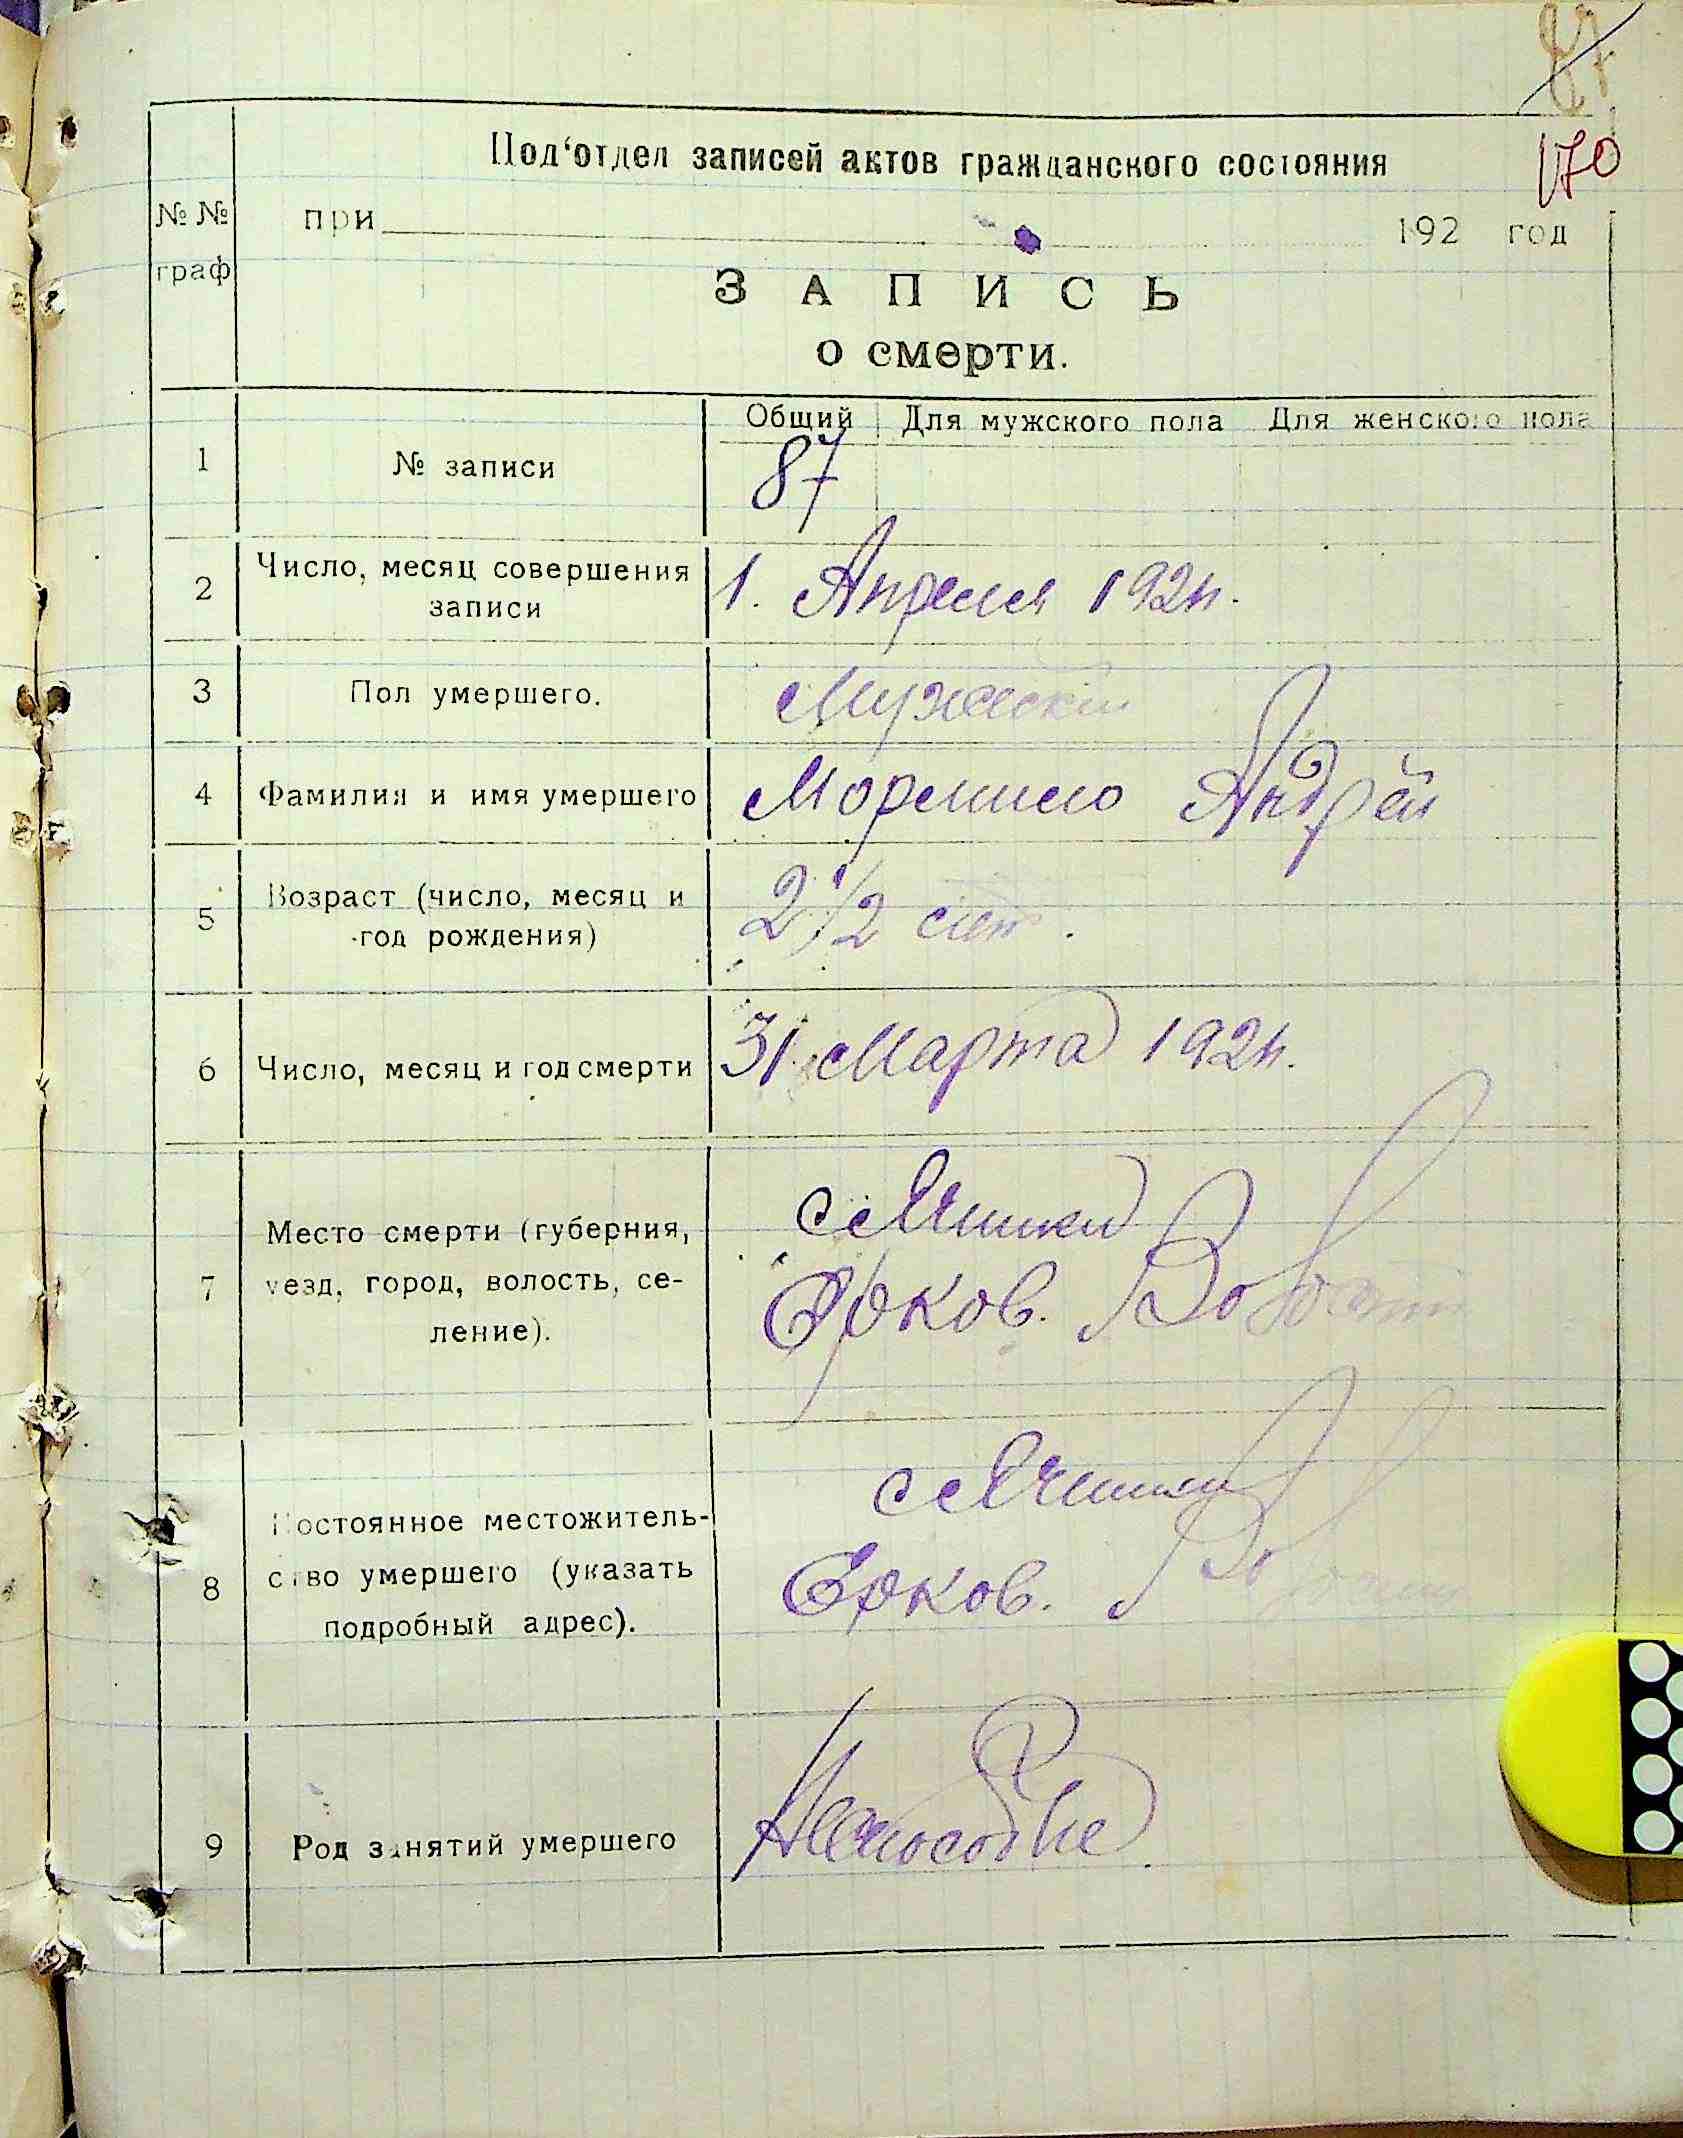 87
170
Под‘отдел записей актов гражданского состояния
№ № граф
при 192 год
ЗАПИСЬ
о смерти.
Общий Для мужского пола Для женского пола
1 № записи 87
2 Число, месяц совершения
записи
1. Апреля 1924.
3 Пол умершего. Мужской
4 Фамилия и имя умершего Андрей
5 Возраст (число, месяц и
год рождения)
2 1/2 лет.
6 Число, месяц и год смерти 31 Марта 1924.
7 Место смерти (губерния,
уезд, город, волость, се-
ление).
с Ячники
Ерков. Волости
8 Постоянное местожитель-
ство умершего (указать
подробный адрес).
с Ячники
Ерков. Волости
9 Род занятий умершего